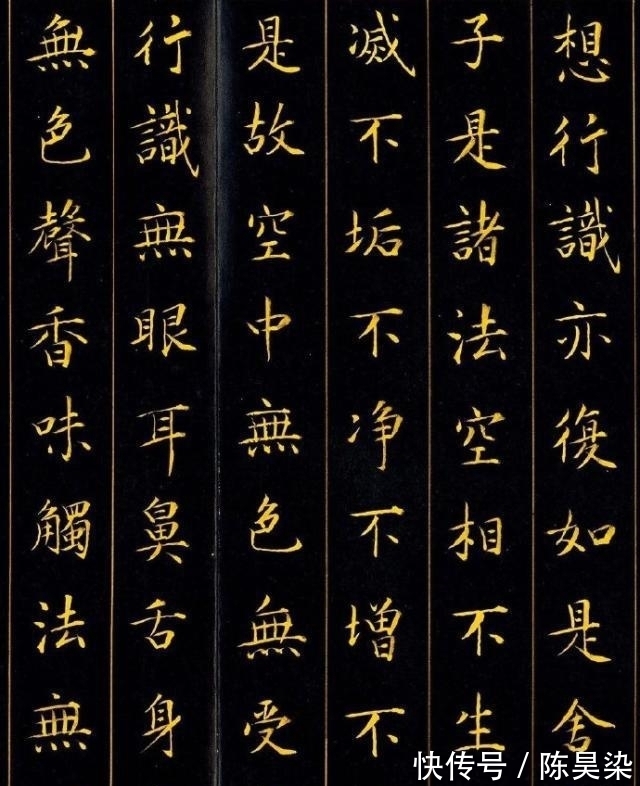 想行識亦復如是舍
子是諸法空相不生
滅不垢不净不增不
是故空中無色無受
行識無眼耳鼻舌身
無色聲香味觸法無
快传号／陈昊染